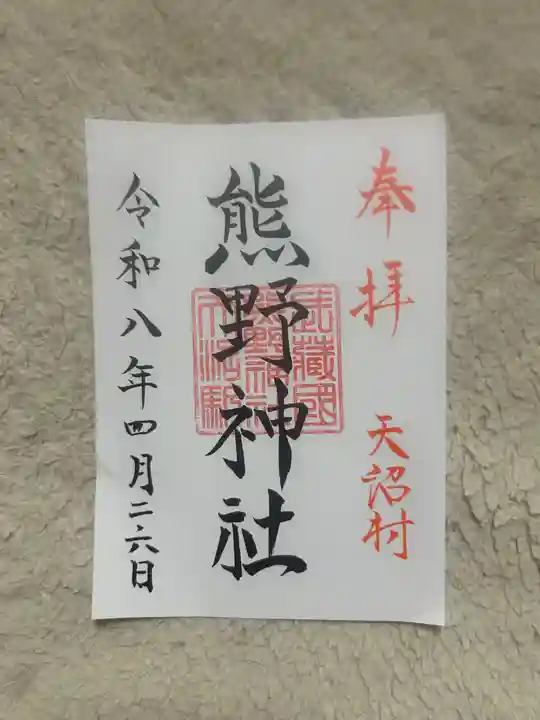 奉拝
天沼村
熊野神社
武蔵國
熊野神社
令和八年四月二六日